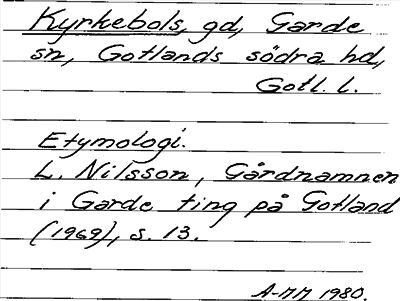 Kyrkebols, gd, Garde
sn, Gotlands södra hd,
Gotl. l.
Etymologi.
L. Nilsson, Gårdnamnen
i Garde ting på Gotland
(1969), s. 13.
A-MM 1980.